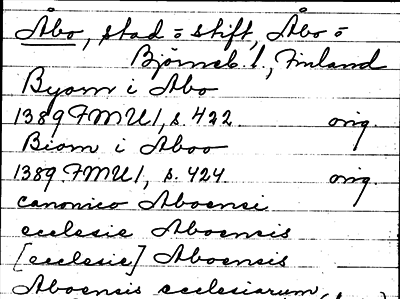 Åbo, stad o stift, Åbo o
Björneb. l., Finland
Byorn i Abo
1389 FMU 1, s. 422. orig.
Biorn i Aboo
1389 FMU 1, s. 424. orig.
canonico Aboensi
ecclesie Aboensis
[ecclesie] Aboensis
Aboensis ecclesiarum,